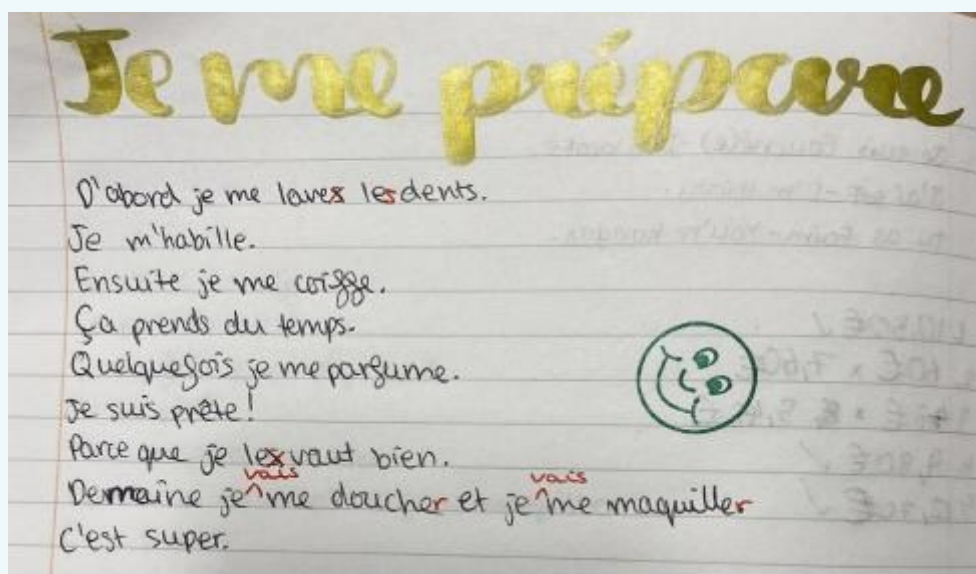 Je me prépare
D'abord je me laves les dents.
Je m'habille.
Ensuite je me coiffe.
Ça prends du temps.
Quelquefois je me parfume.
Je suis prête!
Parce que je lex vaut bien.
vais vais
Demaine je ^ me doucher et je ^ me maquiller
C'est super.